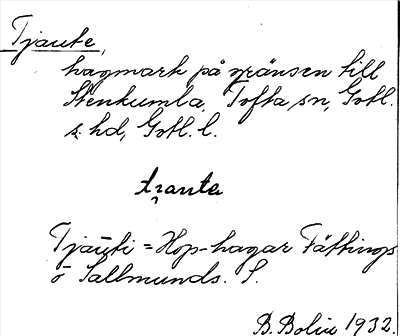 Tjaute,
hagmark på gränsen till
Stenkumla, Tofta sn, Gotl.
s. hd, Gotl. l.
Tjauti = Hop-hagar Fättings
o Sallmunds. S.
B. Bolin 1932.